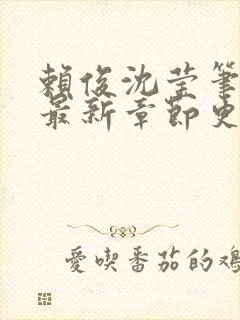 賴俊沈莹筆
最新章節史
愛喫番茄的鴻